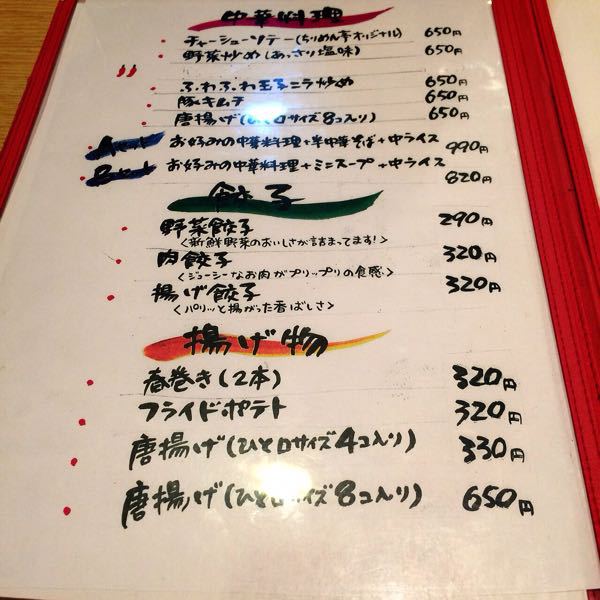 中華料理
チャーシューソテー(ちりめん亭オリジナル) 650円
野菜炒め(あっさり塩味) 650円
ふわふわ玉子ニラ炒め 650円
豚キムチ 650円
唐揚げ(ひと口サイズ8コ入り) 650円
お好みの中華料理+半中華そば+中ライス 990円
お好みの中華料理+ミニスープ+中ライス 820円
餃子
野菜餃子 290円
<新鮮野菜のおいしさが詰まってます!>
肉餃子 320円
<ジューシーなお肉がプリップリの食感>
揚げ餃子 320円
<パリッと揚がった香ばしさ>
揚げ物
春巻き(2本) 320円
フライドポテト 320円
唐揚げ(ひと口サイズ4コ入り) 330円
唐揚げ(ひと口サイズ8コ入り) 650円